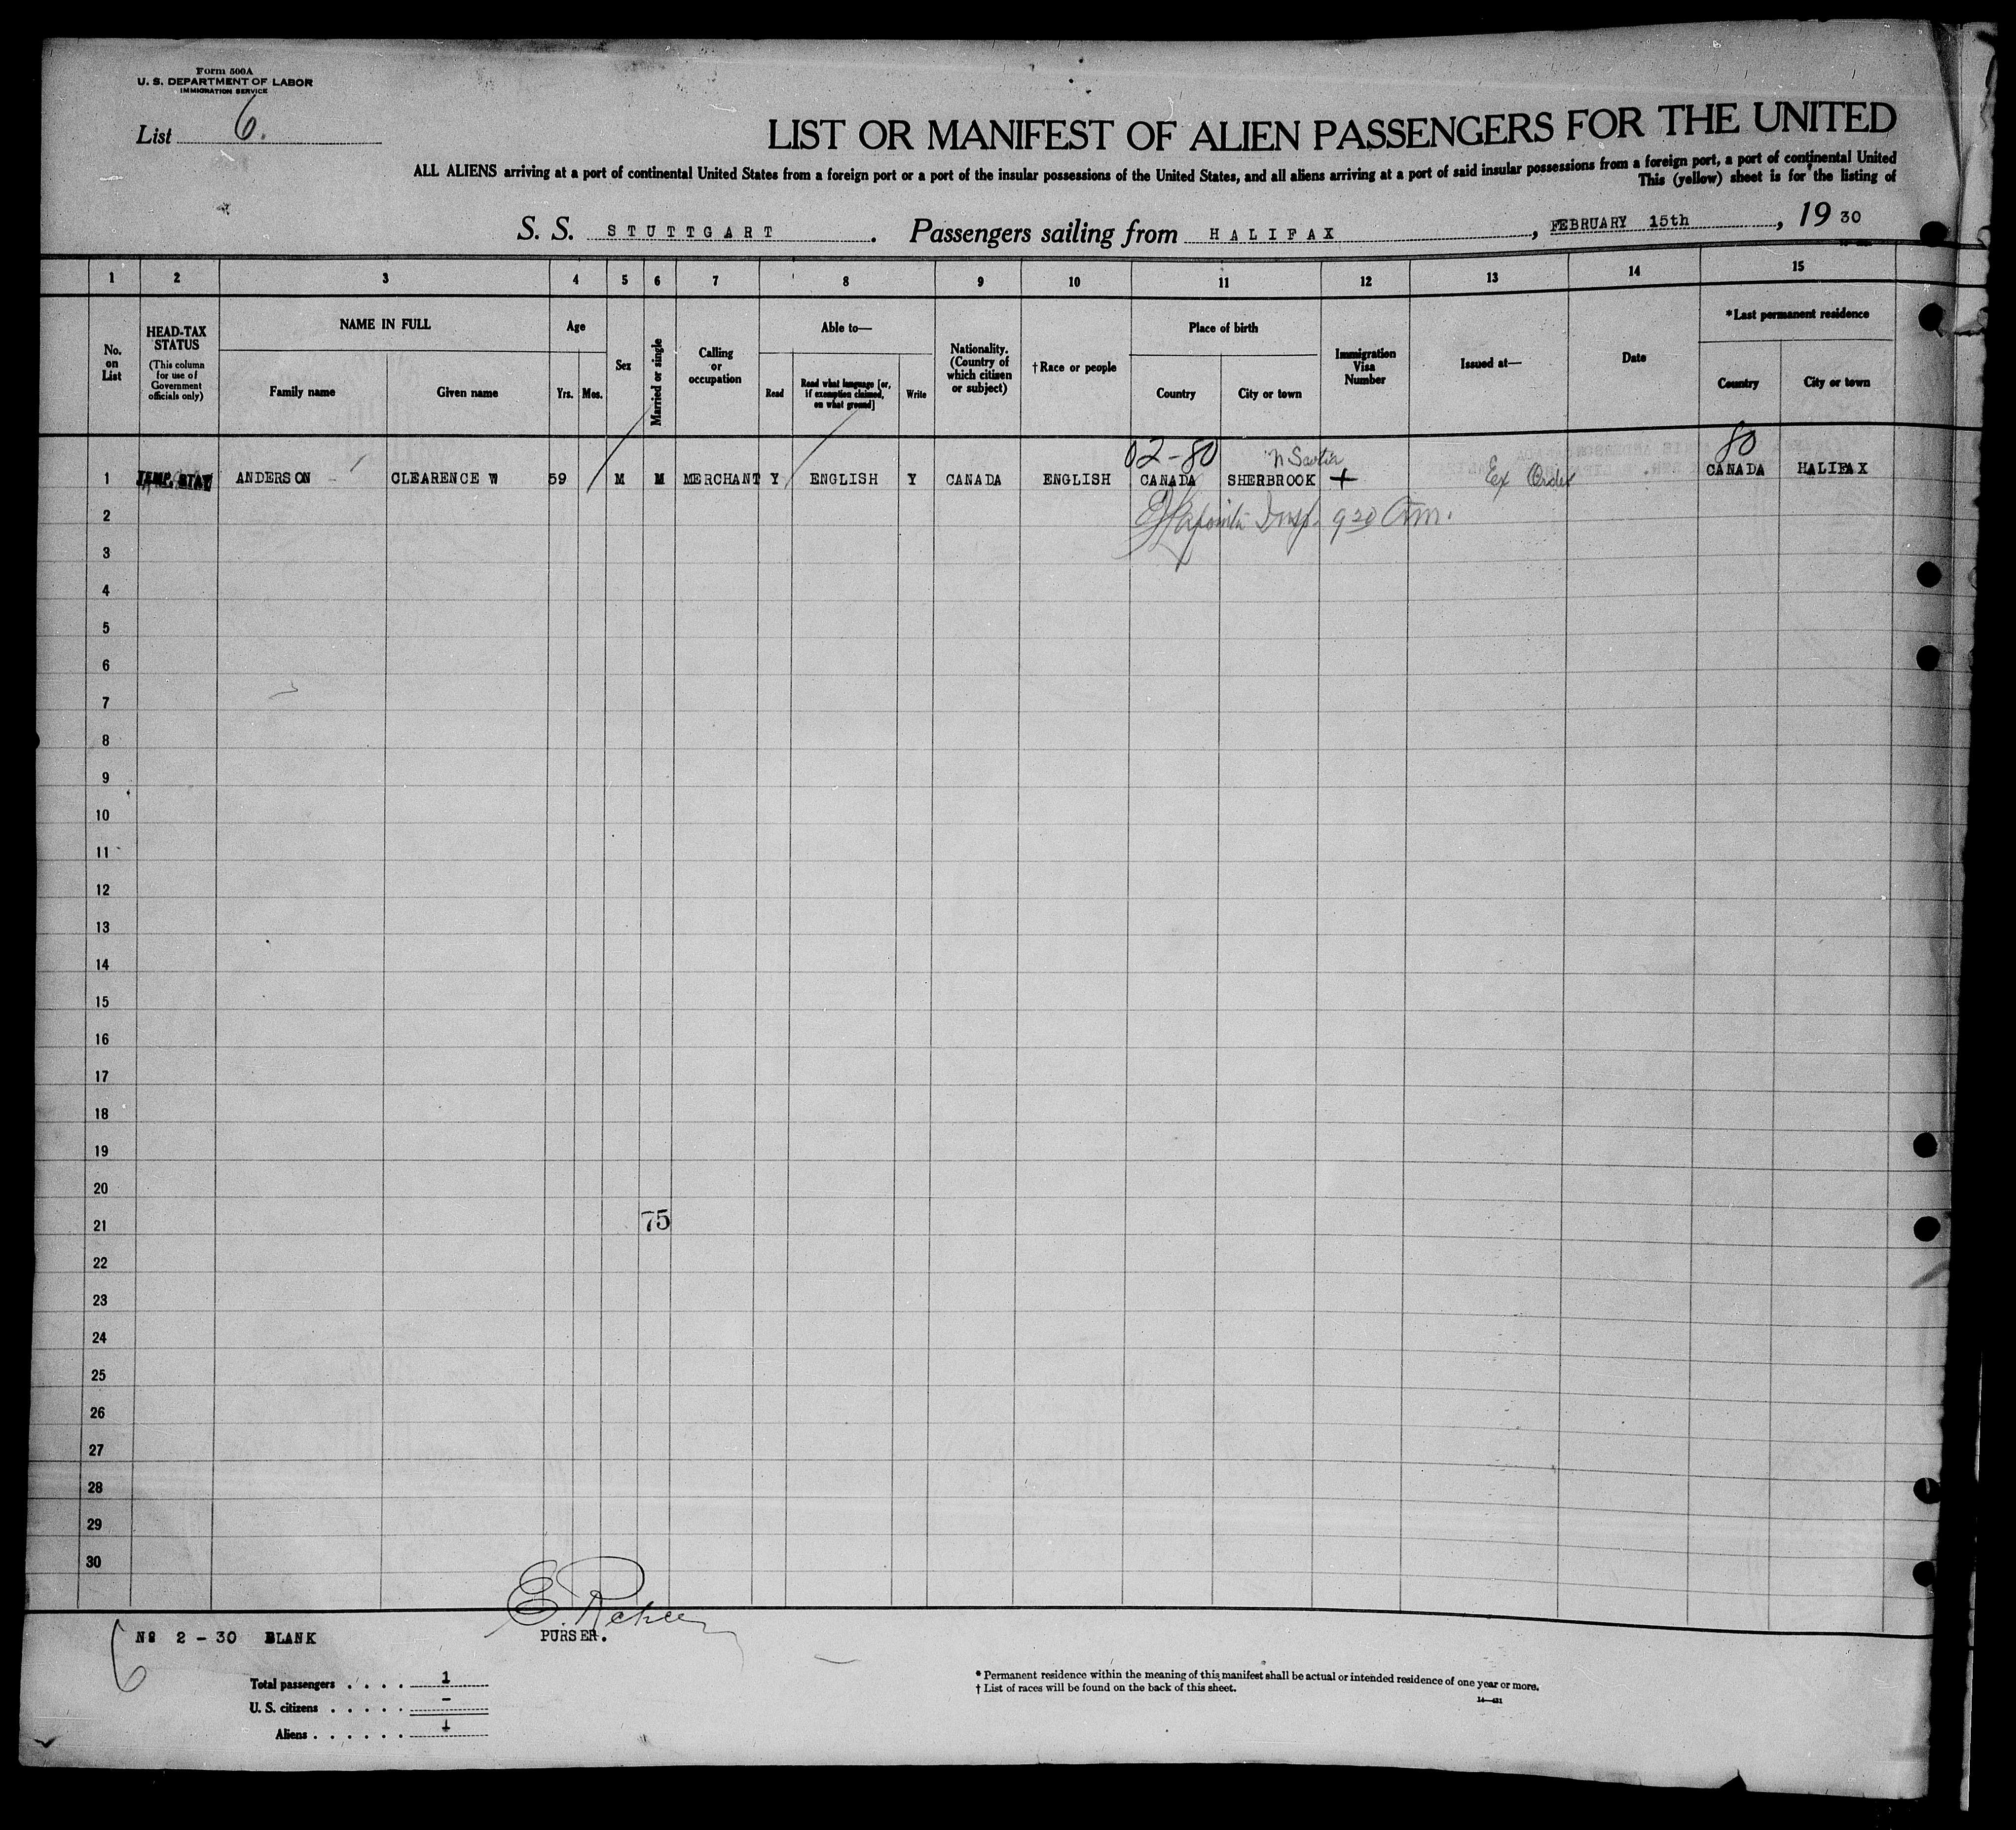 Form 500A
U. S. DEPARTMENT OF LABOR
IMMIGRATION SERVICE
List 6.
LIST OR MANIFEST OF ALIEN PASSENGERS FOR THE UNITED
ALL ALIENS arriving at a port of continental United States from a foreign port or a port of the insular possessions of the United States, and all aliens arriving at a port of said insular possessions from a foreign port, a port of continental United
This (yellow) sheet is for the listing of
S. S. STUTTGART. Passengers sailing from HALIFAX, FEBRUARY 15th, 19 30
1 2 3 4 5 6 7 8 9 10 11 12 13 14 15
No. on List
HEAD-TAX STATUS
(This column for use of Government officials only)
NAME IN FULL
Family name
Given name
Age
Yrs. Mos.
Sex
Married or single
Calling or occupation
Able to—
Read
Read what language [or, if exemption claimed, on what ground]
Write
Nationality. (Country of which citizen or subject)
†Race or people
Place of birth
Country
City or town
Immigration Visa Number
Issued at—
Date
*Last permanent residence
Country
City or town
02-80
80
1 TEMP. STAY ANDERSON CLEARENCE W 59 M M MERCHANT Y ENGLISH Y CANADA ENGLISH CANADA SHERBROOK + Ex Order CANADA HALIFAX
2 Insp. 9 20 Am.
3
4
5
6
7
8
9
10
11
12
13
14
15
16
17
18
19
20
21 75
22
23
24
25
26
27
28
29
30
6
Nº 2 - 30 BLANK
PURSER.
Total passengers . . . . 1
U. S. citizens . . . . . -
Aliens . . . . . . 1
* Permanent residence within the meaning of this manifest shall be actual or intended residence of one year or more.
† List of races will be found on the back of this sheet.
14—431